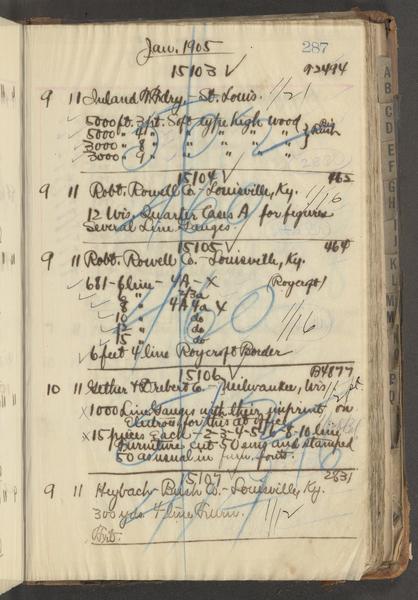 Jan. 1905
287
15103 ✓ 92494
9 11 Inland T. Fdry. - St. Louis. 1/21
5000 ft. 3 pt. Soft type high wood
5000 " 4 " " " " " } Rush
3000 " 8 " " " " "
3000 " 9 " " " " "
15104 ✓ 465
9 11 Robt. Rowell Co. - Louisville, Ky. 1/16
12 Wis. Quarter Cases A for figures
Several Line Gauges
15105 ✓ 464
9 11 Robt. Rowell Co. - Louisville, Ky.
681 - 6 line - 4A - X Roycroft
8 " 4 3a
8 " 4A 4a X
10 " do
12 " do
15 " do 1/16
6 feet 4 line Roycroft Border
15106 ✓ B4877
10 11 Gether & Drebert Co. - Milwaukee, Wis
1000 Line Gauges with their imprint on
Electros for this at office
15 pieces Each - 2-3-4-5-6-8-10 line
Furniture cut 50 ems and stamped
50 as usual in furn. fonts.
15107 ✓ 2831
9 11 Heybach Bush Co. - Louisville, Ky.
300 yds. 4 line Furn. 1/12